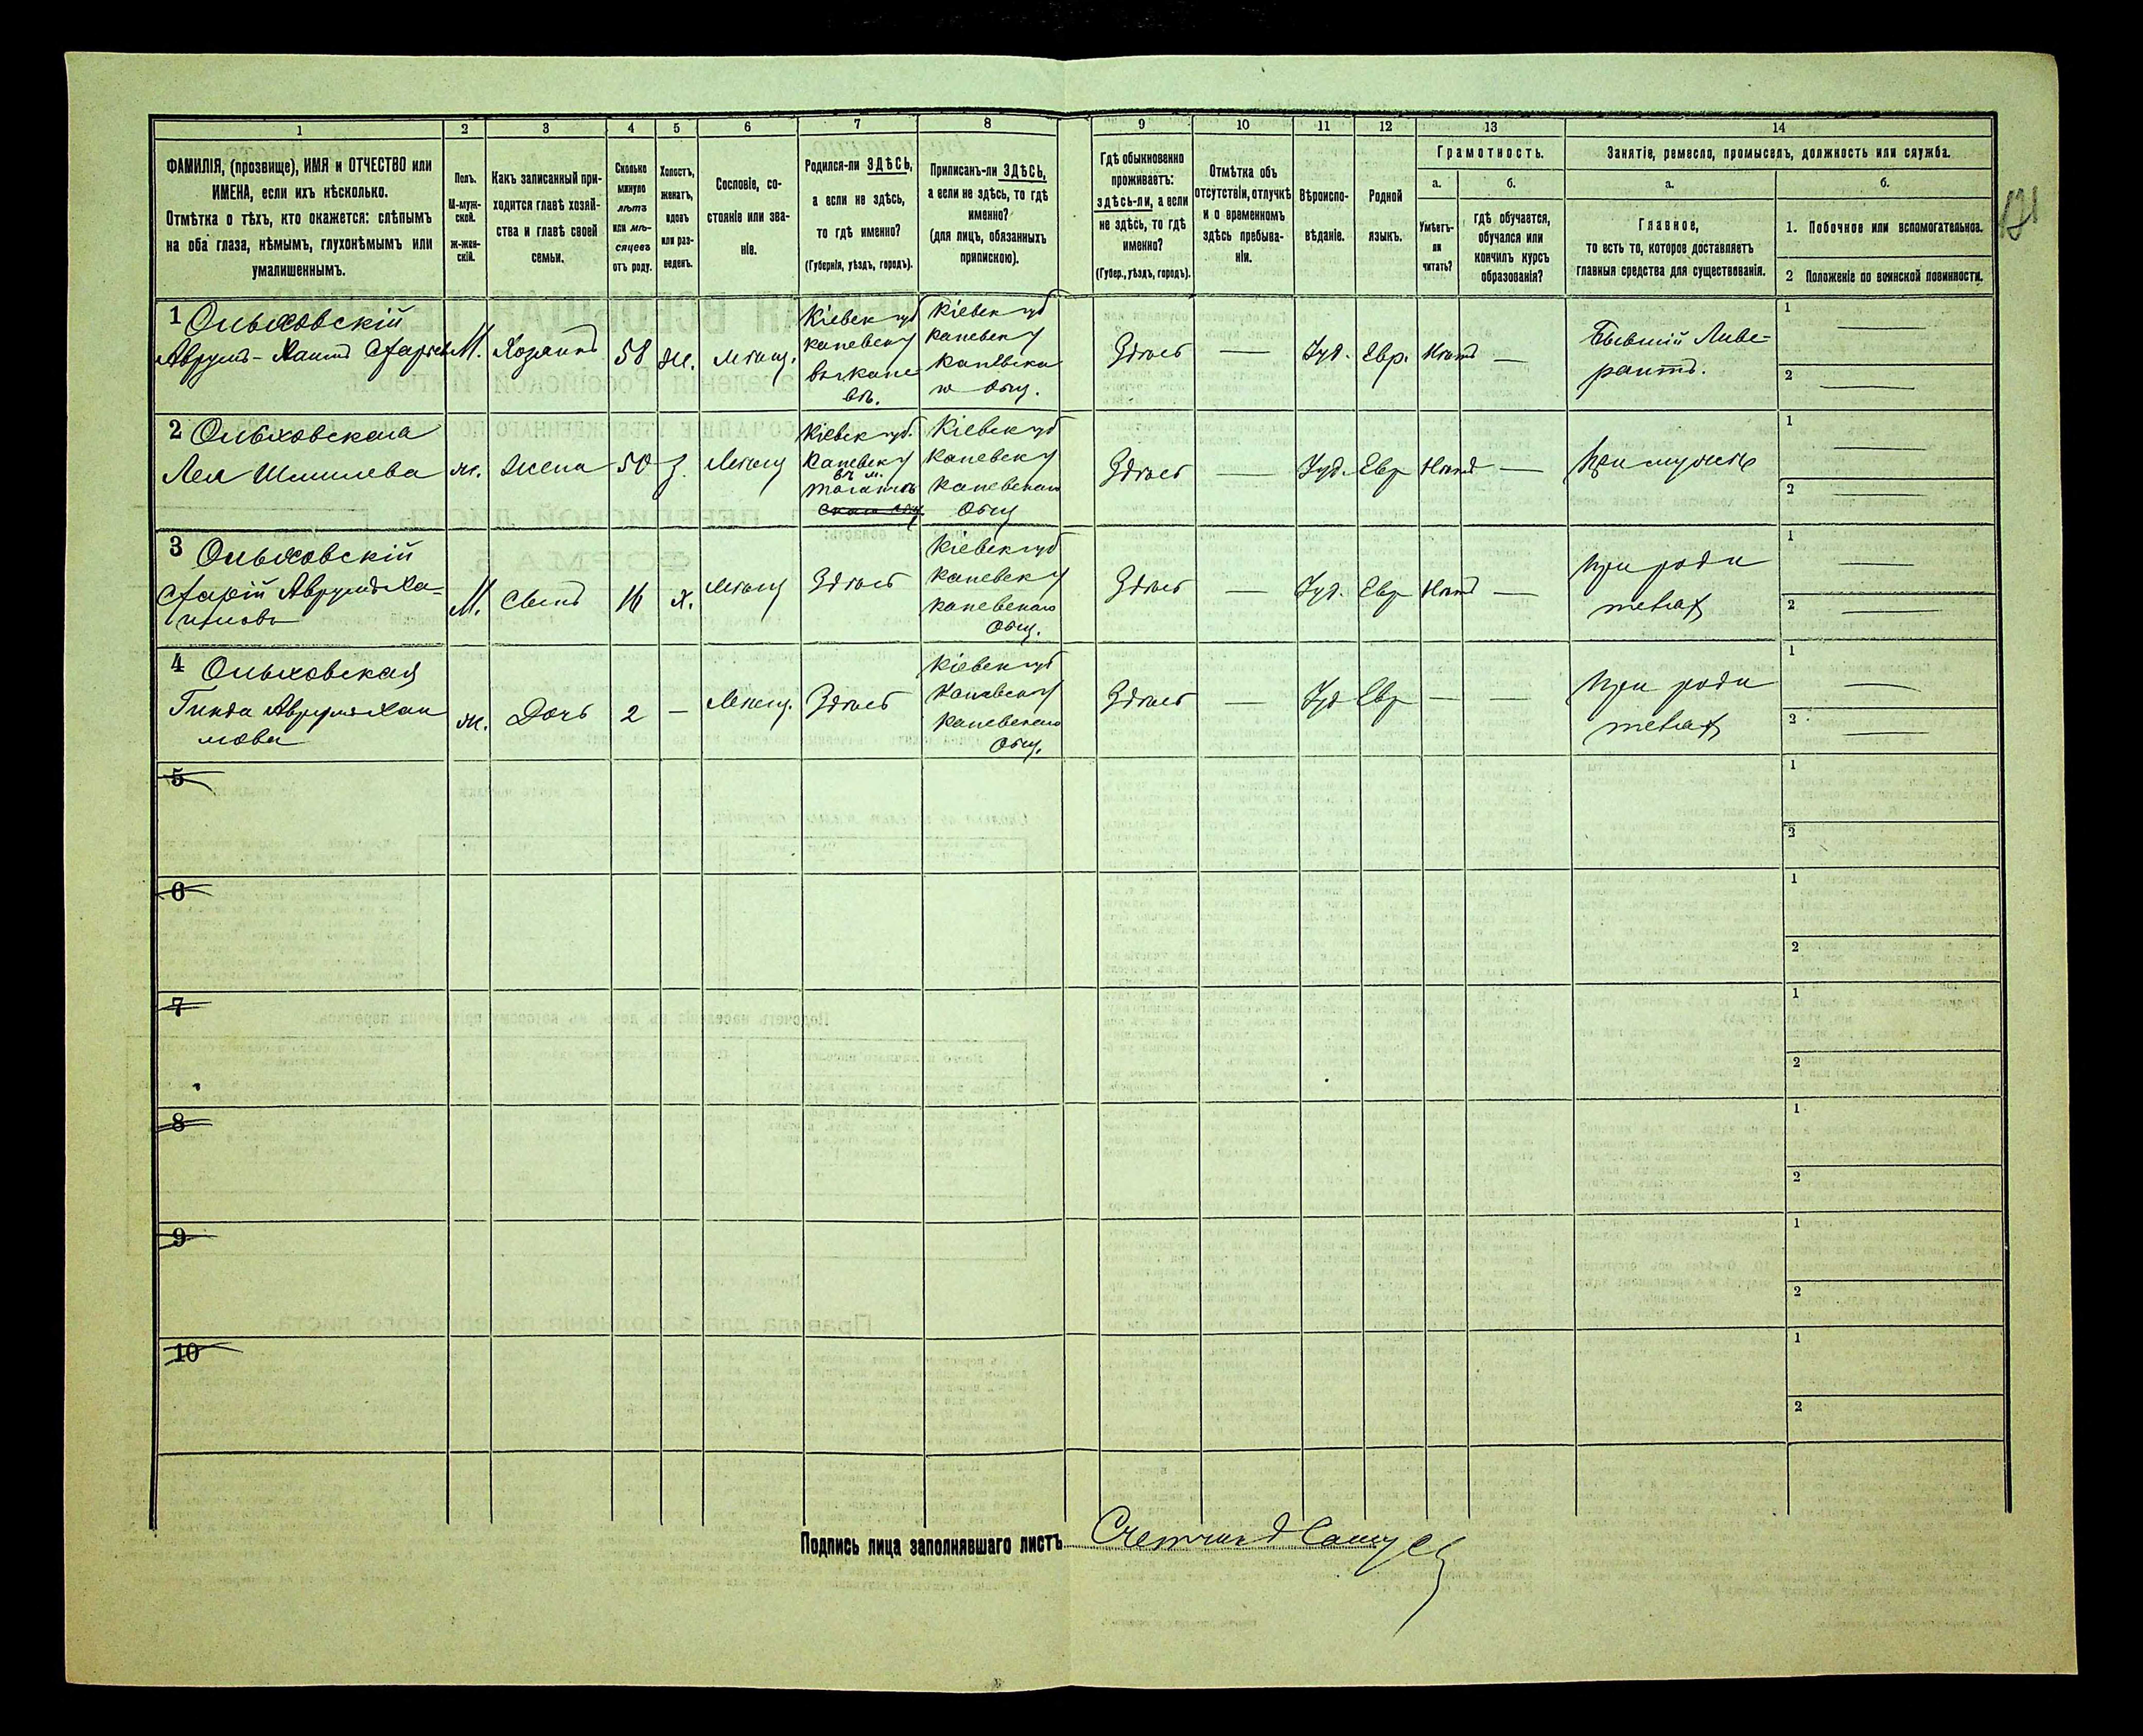 1 2 3 4 5 6 7 8 9 10 11 12 13 14
ФАМИЛІЯ, (прозвище), ИМЯ и ОТЧЕСТВО или
ИМЕНА, если ихъ нѣсколько.
Отмѣтка о тѣхъ, кто окажется: слѣпымъ
на оба глаза, нѣмымъ, глухонѣмымъ или
умалишеннымъ.
Полъ.
М-муж-
ской.
Ж-жен-
скій.
Какъ записанный при-
ходится главѣ хозяй-
ства и главѣ своей
семьи.
Сколько
минуло
лѣтъ
или мѣ-
сяцевъ
отъ роду.
Холостъ,
женатъ,
вдовъ
или раз-
веденъ.
Сословіе, со-
стояніе или зва-
ніе.
Родился-ли ЗДѢСЬ,
а если не здѣсь,
то гдѣ именно?
(Губернія, уѣздъ, городъ).
Приписанъ-ли ЗДѢСЬ,
а если не здѣсь, то гдѣ
именно?
(для лицъ, обязанныхъ
припискою).
Гдѣ обыкновенно
проживаетъ:
здѣсь-ли, а если
не здѣсь, то гдѣ
именно?
(Губер., уѣздъ, городъ).
Отмѣтка объ
отсутствіи, отлучкѣ
и о временномъ
здѣсь пребыва-
ніи.
Вѣроиспо-
вѣданіе.
Родной
языкъ.
Грамотность.
а.
Умѣетъ-
ли
читать?
б.
гдѣ обучается,
обучался или
кончилъ курсъ
образованія?
Занятіе, ремесло, промыселъ, должность или служба.
а.
Главное,
то есть то, которое доставляетъ
главныя средства для существованія.
б.
1. Побочное или вспомогательное.
2 Положеніе по воинской повинности.
121
1 Ольховскій
Аврумъ-Хаимъ
М.
Хозяинъ
58
ж.
Мѣщ.
Кіевск губ
каневск у
въ кане
въ.
Кіевск губ
каневск у
каневска
го общ.
Здѣсь
—
Іуд.
Евр.
Нѣтъ
—
Бывшій Ливе-
рантъ.
1 —
2 —
2 Ольховская
Лея Шмилева
ж.
Жена
50
з.
Мѣщ
Кіевск губ.
Каневск у
въ м.
Кіевск губ
каневск у
каневскаго
Общ
Здѣсь
—
Іуд.
Евр
Нѣтъ
—
При мужѣ
1 —
2 —
3 Ольховскій
Аврумъ Ха-
имовъ
М.
Сынъ
16
х.
Мѣщ
Здѣсь
Кіевск губ
каневск у
каневскаго
Общ.
Здѣсь
—
Іуд.
Евр
Нѣтъ
—
при роди
теляхъ
1 —
2 —
4 Ольховская
Гинда Аврумъ Хаи
мова
ж.
Дочь
2
—
Мѣщ.
Здѣсь
Кіевск губ
Каневск у
каневскаго
Общ.
Здѣсь
—
Іуд
Евр
—
—
при роди
теляхъ
1 —
2 —
5
1
2
6
1
2
7
1
2
8
1
2
9
1
2
10
1
2
Подпись лица заполнявшаго листъ Счетчикъ